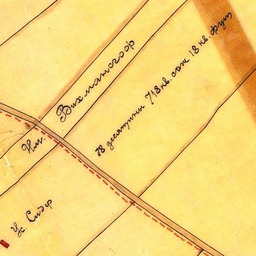 Им. Вихмансгоф
78 десятинъ 713 кв. саж 18 кв. фут.
Ус Сидф